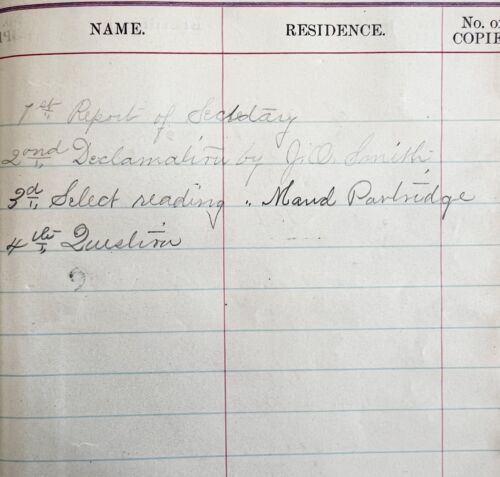 NAME. RESIDENCE. No. of COPIE
1st Report of Secretary
2ond Declamation by J. O. Smith
3d Select reading " Maud Partridge
4th Question
?